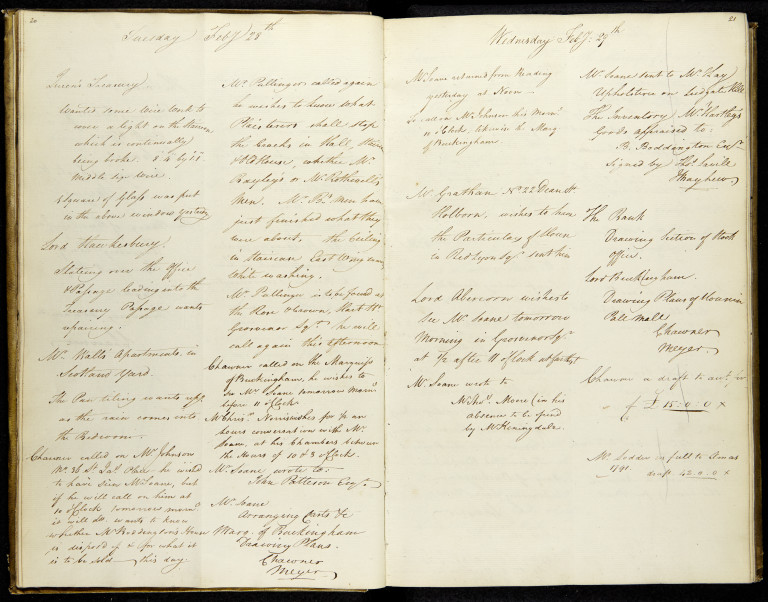 20
Tuesday Feby 28th
Queen's Treasury.
Wanted some Wire Work to
cover a light on the Staircase
which is continually
being broke.
Middle size Wire.
A Square of Glass was put
in the above window yesterday
Lord Hawkesbury.
Slating over the Office
& Passage leading into the
Treasury Passage wants
repairing.
Mr Wall's Apartments in
Scotland Yard.
The Pan tiling wants repg
as the rain comes into
the Bedroom.
Chawner called on Mr Johnson
No. 36 St Jas Place he wish'd
to have seen Mr Soane, but
if he will call on him at
10 o'Clock tomorrow morng
it will do. wants to know
whether Mr Boddington's House
is disposed of & for what it
is to be sold this day.
Mr Pullinger called again
he wishes to know what
Plaisterers shall stop
the breaks in Hall, Stairs
whether Mr
Bayley's or Mr Rothwell's
Men. Mr Ps. Men have
just finished what they
were about. the Ceiling
in Staircase East Wing wants
White washing.
Mr Pullinger is to be found at
the Rose & Crown, Hart St
Grosvenor Sqr. he will
call again this afternoon
Chawner called on the Marquiss
of Buckingham, he wishes to
see Mr Soane tomorrow morng
before 11 o'Clock
Mr Chrisr Norris wishes for 1/2 an
hours conversation with Mr
Soane, at his Chambers between
the Hours of 10 & 3 o'Clock.
Mr Soane wrote to:
John Patteson Esqr.
Mr Soane
Arranging Accts &c
Marq. of Buckingham
Drawing Plans.
Chawner
Meyer
21
Wednesday Feby: 29th
Mr Soane returned from Reading
yesterday at Noon
to call on Mr Johnson this Morng
11 o'Clock, likewise the Marq
of Buckingham
Mr Grathan No 22 Dean St
Holborn, wishes to have
the Particulars of House
in Red Lyon Sqr sent him
Lord Abercorn wishes to
see Mr Soane tomorrow
Morning in Grosvenor Sqr
at 1/2 after 11 o'Clock at furthest
Mr Soane wrote to
Mr Thos. Moore (in his
absence to be opened
by Mr Henningdale.
Mr Soane sent to Mr Kay
Upholsterer on Ludgate Hill
The Inventory Mr Hartley's
Goods appraised to:
B. Boddington Esqr
Signed by Thos Savill
J Mayhew
The Bank
Drawing Section of Stock
Office.
Lord Buckingham.
Drawing Plans of House in
Pall Mall
Chawner
Meyer
Chawner a draft to
£ 15.0.0 X
Mr Sodder in full to Xmas
1791. draft 42.0.0 X